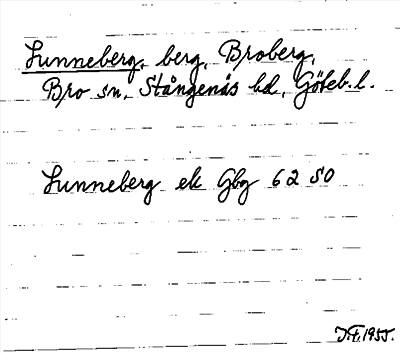 Lunneberg, berg, Broberg,
Bro sn, Stångenäs hd, Göteb.l.
Lunneberg ek Gbg 62 SO
J.F. 1955.